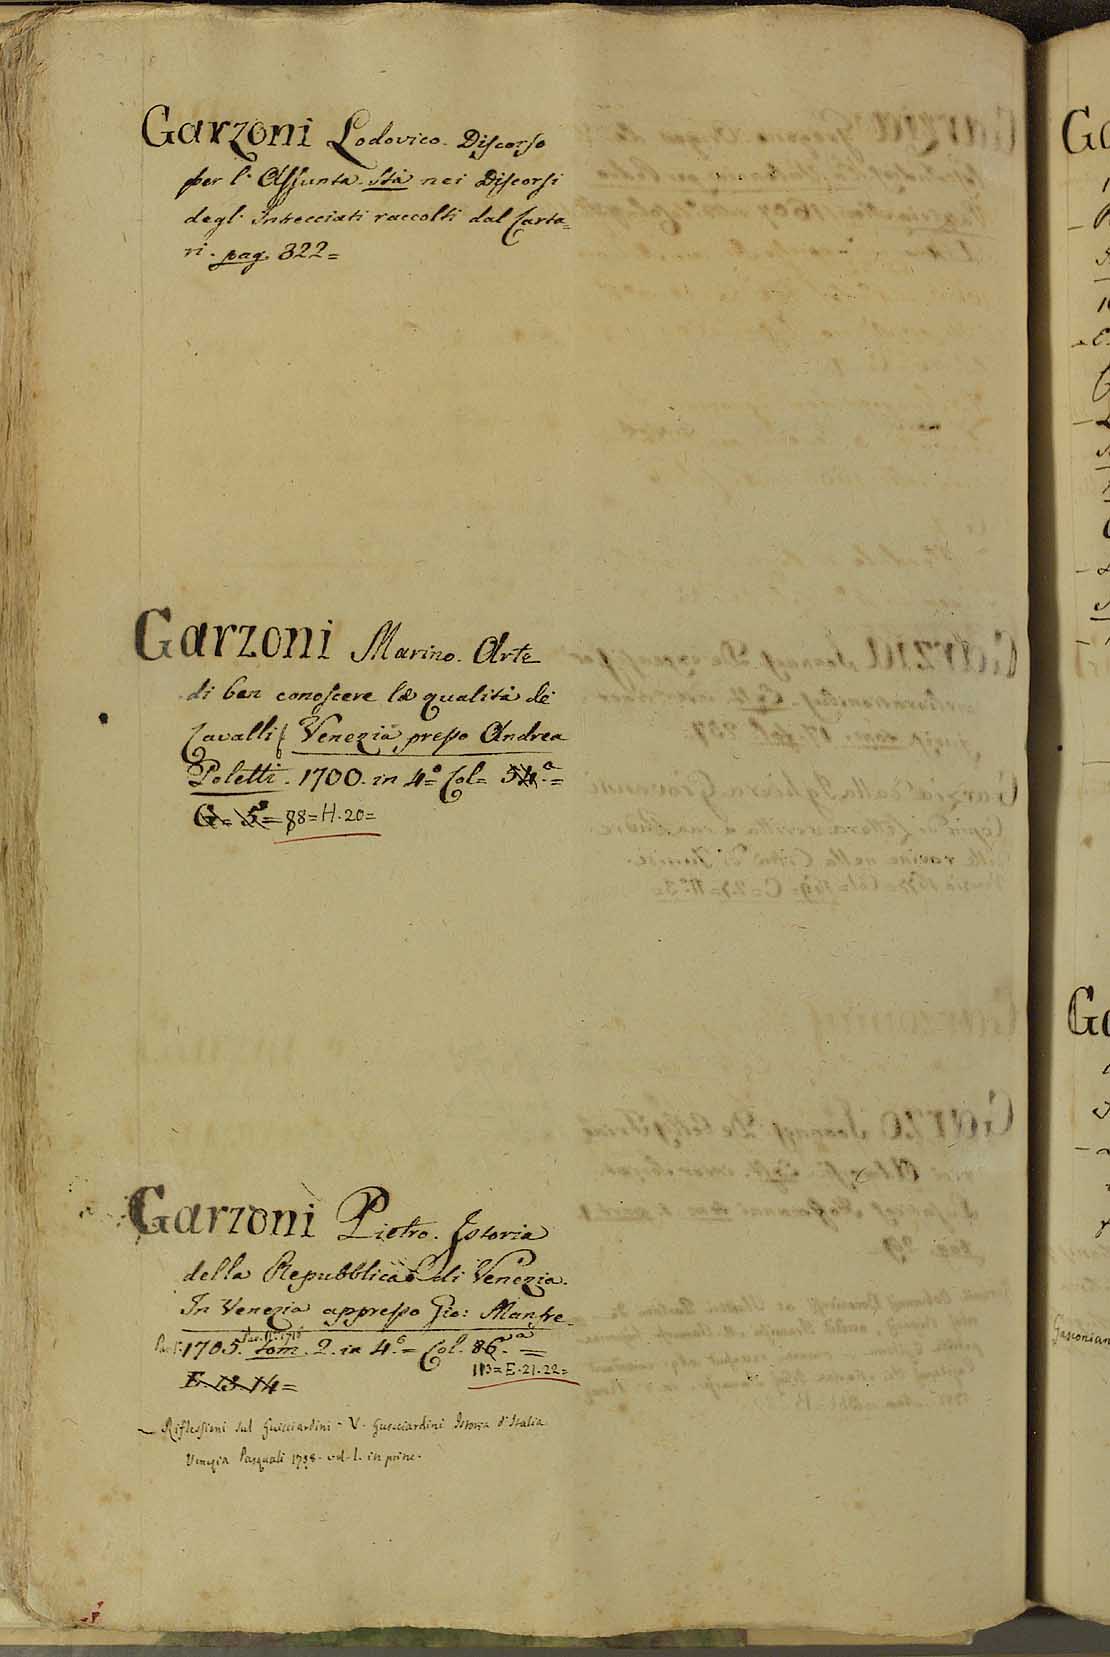 Garzoni Lodovico. Discorso
per l'Assunta. Sta nei Discorsi
degl' Intrecciati raccolti dal Carta=
ri. pag. 322=
Garzoni Marino. Arte
di ben conoscere le qualità dei
Cavalli Venezia presso Andrea
Poletti. 1700. in 4.º Col= 54.ª=
G= 5= 88=H.20=
Garzoni Pietro. Istoria
della Repubblica di Venezia.
In Venezia appresso Gio: Manfrè
Par. II.ª 1716
1705. tom. 2. in 4.º= Col. 86.ª=
113=E.21.22=
E 13 14=
Riflessioni sul Guicciardini - V. Guicciardini Istoria d'Italia
Venezia Pasquali 1738. vol. 1. in princ.